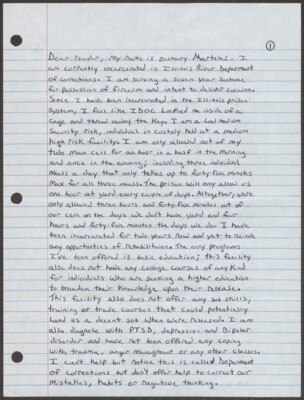 ①
Dear reader, my name is Zachary Martinez. I
am currently incarcerated in Illinois River Department
of corrections. I am serving a seven year sentence
for possession of firearm and intent to deliver cocaine.
Since I have been incarcerated in the Illinois prison
system, I feel like IDOC Locked me inside of a
cage and threw away the Keys. I am a Low medium
Security risk, individual in custody held at a medium
high risk facility. I am only allowed out of my
two man cell for an hour in a half in the morning
and once in the evening; including three individual
meals a day that only takes up to forty-five minutes
max for all three meals. The prison will only allow us
one hour at yard every couple of days. Altogether, we're
only allowed three hours and forty-five minutes out of
our cell on the days we don't have yard and four
hours and forty-five minutes the days we do. I have
been incarcerated for two years now and yet to receive
any opportunities of rehabilitation. The only programs
I've been offered is basic education; this facility
also does not have any college courses of any Kind
for individuals who are seeking a higher education
to broaden their Knowledge upon their release.
This facility also does not offer any job skills,
training or trade courses that could potentially
land us a decent job when we're released. I am
also diagnose with PTSD, depression and Bipolar
disorder and have not been offered any coping
with trauma, anger management or any other classes.
I can't help but notice this is called Department
of corrections but don't offer help to correct our
mistakes, habits or negative thinking.